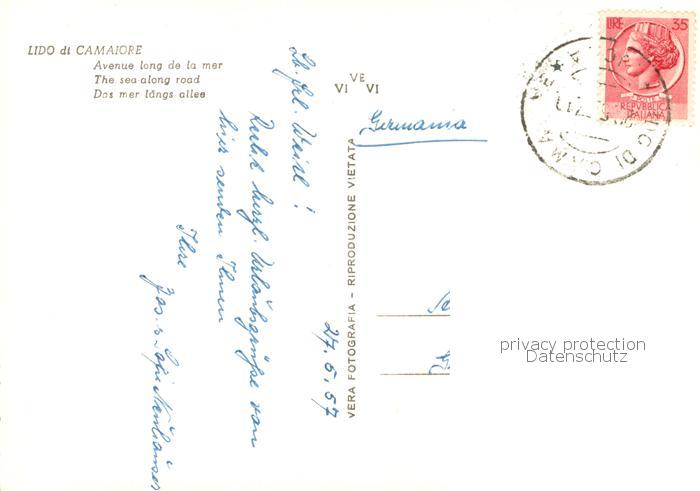 LIDO di CAMAIORE
Avenue long de la mer
The sea-along road
Das mer längs allee
VE
VI VI
VERA FOTOGRAFIA - RIPRODUZIONE VIETATA
LIRE 35
POSTE
REPVBBLICA
ITALIANA
DI CAMA
Germania
27.5.57
Weisl!
Recht herzl. Urlaubsgrüße von
hier senden Ihnen
Ihre
Jos. u.
privacy protection
Datenschutz